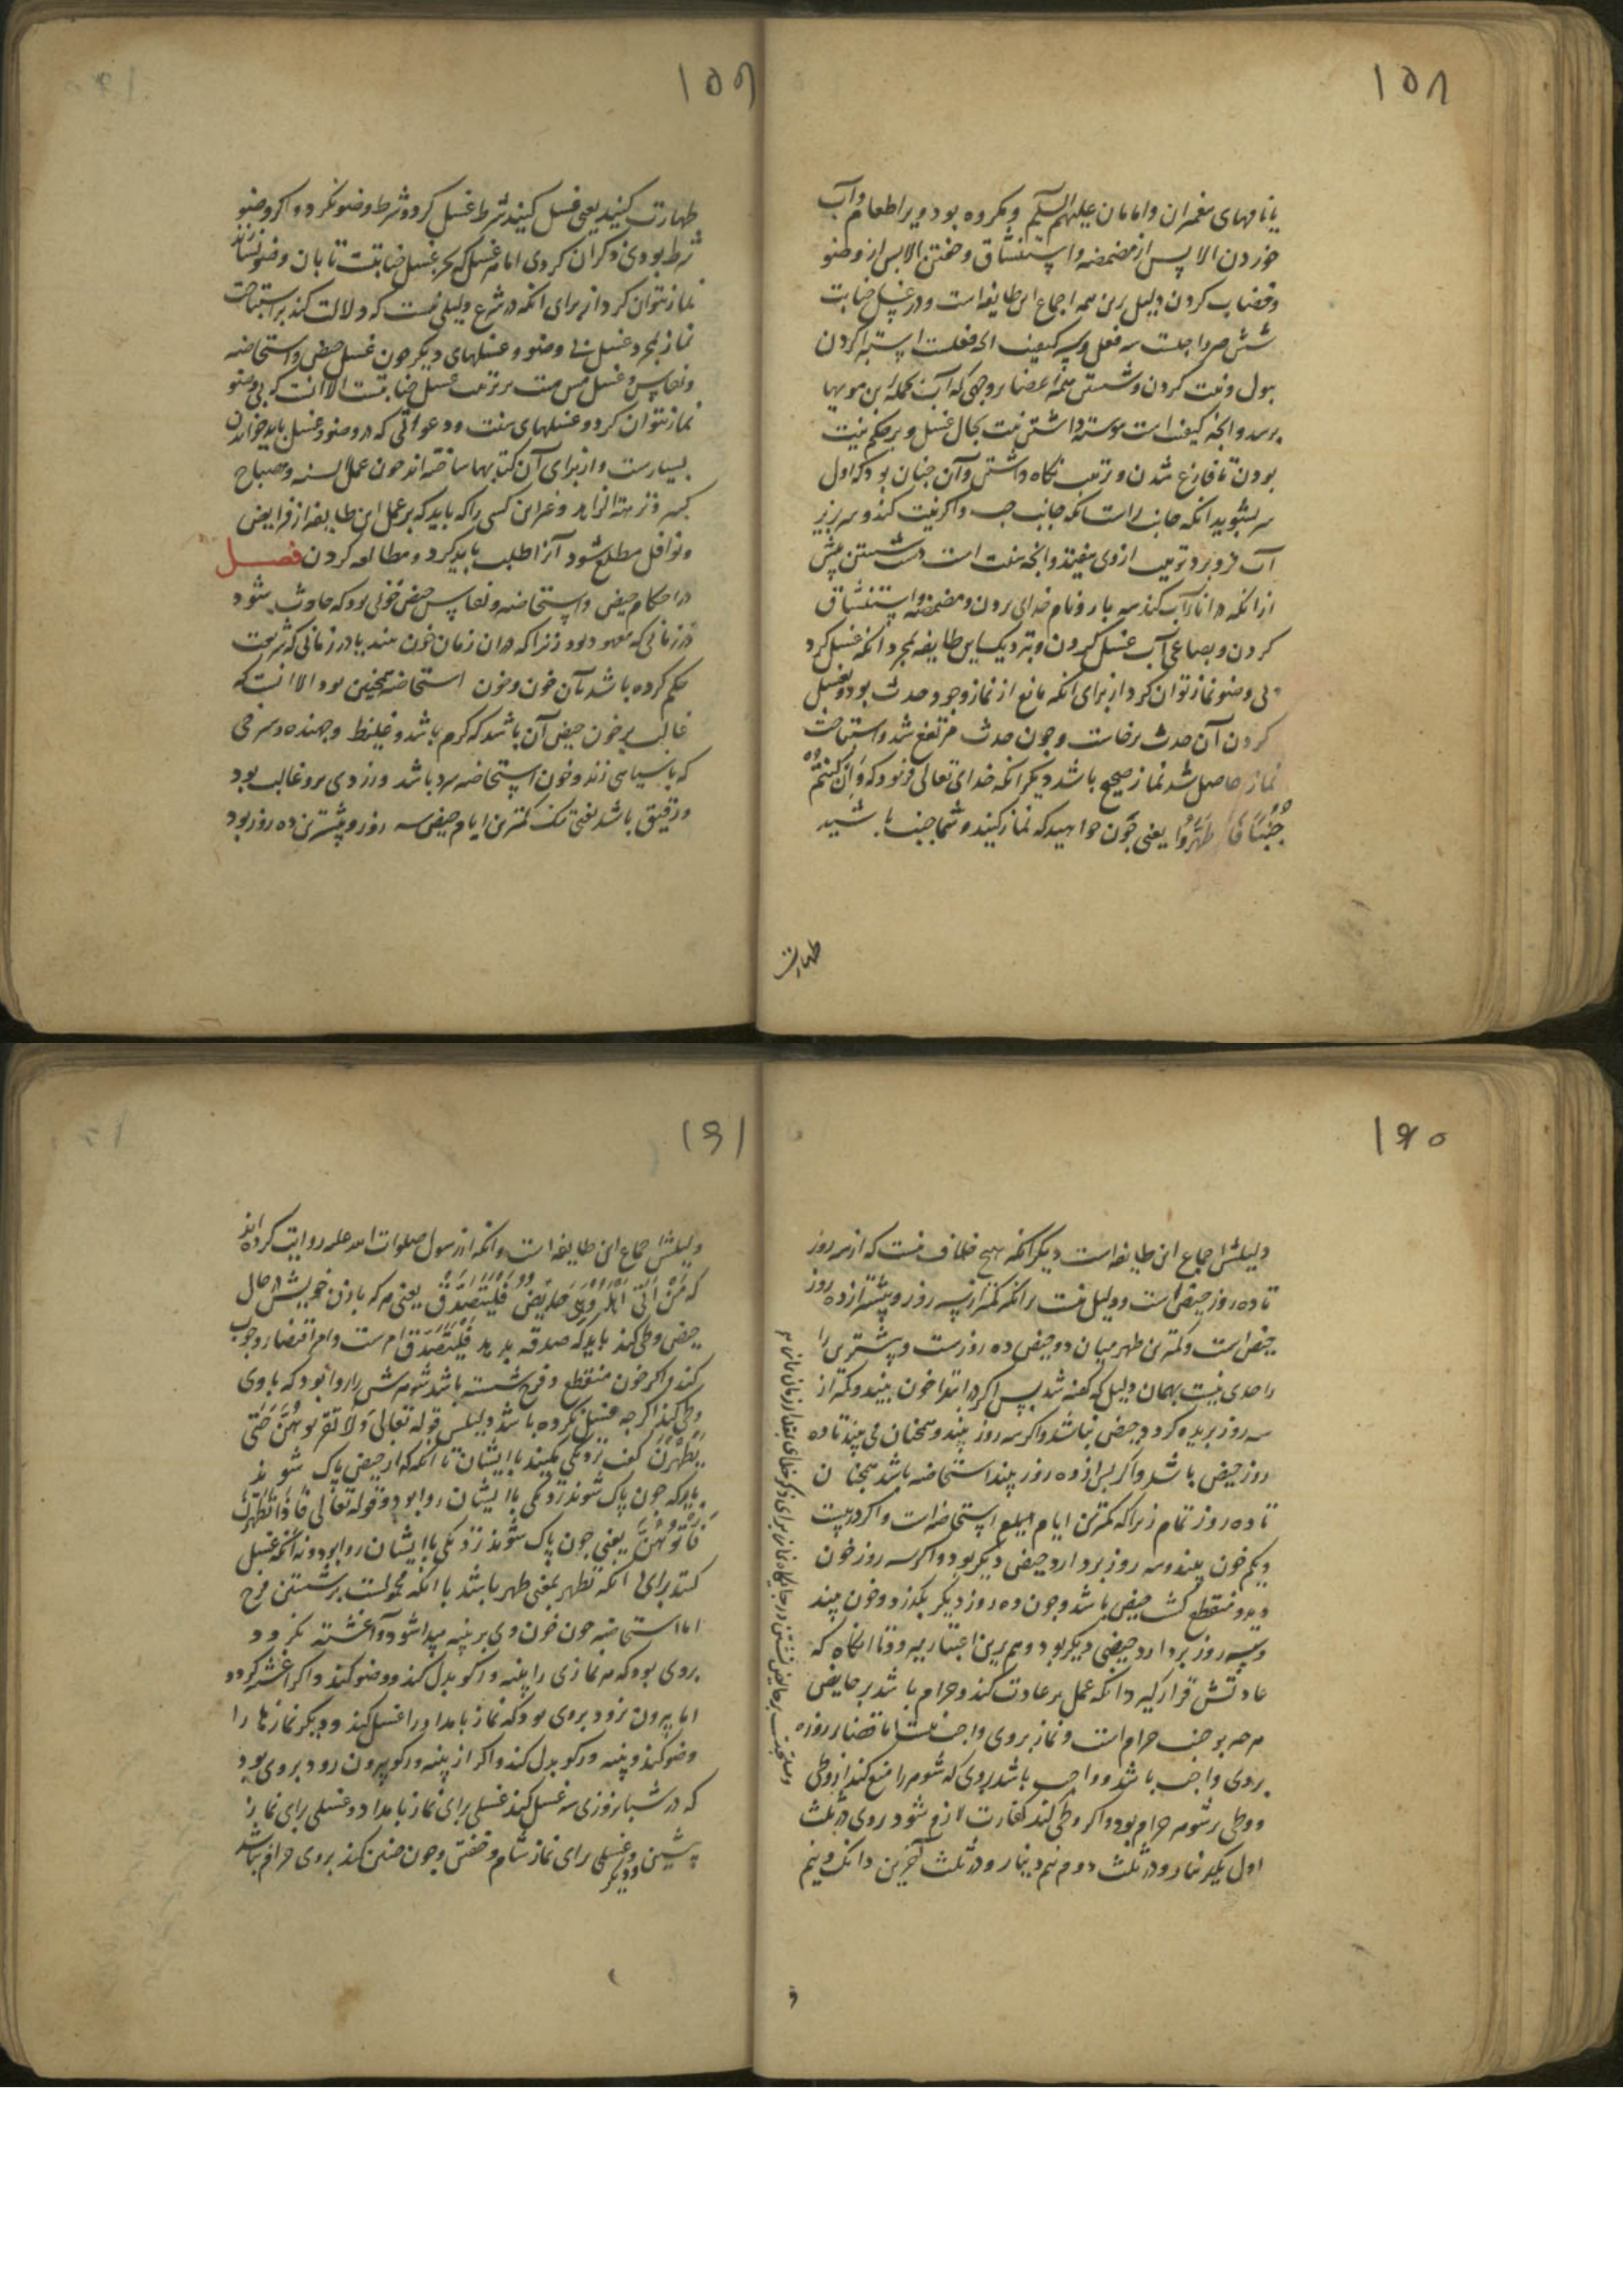 ۱۵۸
یا نامهای پیغمبران و امامان علیهم السلم و مکروه بود ویرا طعام و آب
خوردن الا پس از مضمضه و استنشاق و خفتن الا پس از وضو
و خضاب کردن دلیل برین همه اجماع این طایفه است و در غسل جنابت
شش چیز واجبست سه فعل و سه کیفیت انچه فعلست استبرا کردن
ببول و نیت کردن و شستن همه اعضا بر وجهی که آب بجمله این مویها
برسد و انچه کیفیت است پیوسته داشتن نیت بحال غسل و بر حکم نیت
بودن تا فارغ شدن و ترتیب نگاه داشتن و آن چنان بود که اول
سر بشوید انکه جانب راست انکه جانب چپ و اکر نیت کند و سر بزیر
آب فرو برد ترتیب ازوی بیفتد و انچه سنت است دست شستن پیش
از انکه در اناء آب کند سه بار و نام خدای بردن و مضمضه و استنشاق
کردن و بصاعی آب غسل کردن و بنزدیک این طایفه بمجرد انکه غسل کرد
بی وضو نماز توان کرد از برای انکه مانع از نماز وجود حدث بود و بغسل
کردن آن حدث برخاست و چون حدث مرتفع شد و استباحت
نماز حاصل شد نماز صحیح باشد دیکر انکه خدای تعالی فرمود که وَاِنْ کُنْتُمْ
جُنُبًا فَاطَّهَّرُوا یعنی چون خواهید که نماز کنید و شما جنب باشید
طهارت
۱۵۹
طهارت کنید یعنی غسل کنید شرط غسل کرد و شرط وضو نکرد و اکر وضو
شرط بودی ذکر آن کردی اما هر غسل که بجز غسل جنابتست تا بآن وضو نسازند
نماز نتوان کرد از برای انکه در شرع دلیلی نیست که دلالت کند بر استباحت
نماز بمجرد غسل بی وضو و غسلهای دیکر چون غسل حیض و استحاضه
و نفاس و غسل مس میت بر ترتیب غسل جنابتست الا انست که بی وضو
نماز نتوان کرد و غسلهای سنت و دعواتی که در وضو و غسل باید خواندن
بسیارست و از برای آن کتابها ساخته اند چون عمل السنه و مصباح
کبیر و نزهة الزاهد و غیر این کسی را که باید که بر عمل این طایفه از فرایض
و نوافل مطلع شود آنرا طلب باید کرد و مطالعه کردن فصل
در احکام حیض و استحاضه و نفاس حیض خونی بود که حادث شود
در زمانی که معهود بود زنرا که در ان زمان خون بیند یا در زمانی که شریعت
حکم کرده باشد بآن خون و خون استحاضه همچنین بود الا انست که
غالب بر خون حیض آن باشد که کرم باشد و غلیظ و جهنده و سرخی
که با سیاهی زند و خون استحاضه سرد باشد و زردی برو غالب بود
و رقیق باشد یعنی تنک کمترین ایام حیض سه روز و بیشترین ده روز بود
۱۶۰
دلیلش اجماع این طایفه است دیکر انکه هیچ خلاف نیست که از سه روز
تا ده روز حیض است و دلیل نیست بر انکه کمتر از سه روز و بیشتر از ده روز
حیض است و کمترین طهر میان دو حیض ده روزست و بیشترین را
را حدی نیست بهمان دلیل که کفته شد پس اکر در ابتدا خون بیند و کمتر از
سه روز بریده کردد حیض نباشد و اکر سه روز بیند و همچنان می بیند تا ده
روز حیض باشد و اکر پس از ده روز بیند استحاضه باشد همچنان
تا ده روز تمام زیرا که کمترین ایام استحاضه است و اکر در بیست
ویکم خون بیند و سه روز بردارد حیضی دیکر بود و اکر سه روز خون
دید و منقطع کشت حیض باشد و چون ده روز دیکر بکذرد و خون بیند
و سه روز بردارد حیضی دیکر بود و هم برین اعتبار میرود تا انکاه که
عادتش قرار کیرد انکه عمل بر عادت کند و حرام باشد بر حایض
هر چه بر جنب حرام است و نماز بروی واجب نیست اما قضاء روزه
بروی واجب باشد و واجب باشد بروی که شوهر را منع کند از وطی
و وطی بر شوهر حرام بود و اکر وطی کند کفارت لازم شود بروی در ثلث
اول یکدینار و در ثلث دوم نیم دینار و در ثلث آخرین دانک و نیم
و مستحبست بر حایض نشستن در جایگاه نماز برای ذکر خدای بمقدار زمان نماز
و
۱۶۱
دلیلش اجماع این طایفه است و انکه از رسول صلوات الله علیه روایت کرده اند
که مَنْ اَتی اَهْلَهُ وَهِیَ حَایِضٌ فَلْیَتَصَدَّقْ یعنی هر که با زن خویش در حال
حیض وطی کند باید که صدقه بدهد فَلْیَتَصَدَّقْ امرست و امر اقتضاء وجوب
کند و اکر خون منقطع و فرج شسته باشد شوهرش را روا بود که با وی
وطی کند اکر چه غسل نکرده باشد دلیلش قوله تعالی وَلَا تَقْرَبُوهُنَّ حَتَّی
یَطْهُرْنَ کفت نزدیکی مکنید با ایشان تا انکه که از حیض پاک شوند
باید که چون پاک شوند نزدیکی با ایشان روا بود و قوله تعالی فَاِذَا تَطَهَّرْنَ
فَأْتُوهُنَّ یعنی چون پاک شوند نزدیکی با ایشان روا بود و نه انکه غسل
کنند برای انکه تطهر بمعنی طهر باشد یا انکه محمولست بر شستن فرج
اما استحاضه چون خون وی بر پنبه پیدا شود و آغشته نکردد
بروی بود که هر نمازی را پنبه و رکو بدل کند و وضو کند و اکر آغشته کردد
اما بیرون نرود بروی بود که نماز بامداد را غسل کند و دیکر نمازها را
وضو کند و پنبه و رکو بدل کند و اکر از پنبه و رکو بیرون رود بروی بود
که در شبانروزی سه غسل کند غسلی برای نماز بامداد و غسلی برای نماز
پیشین و دیکر و غسلی برای نماز شام و خفتن و چون چنین کند بروی حرام نباشد